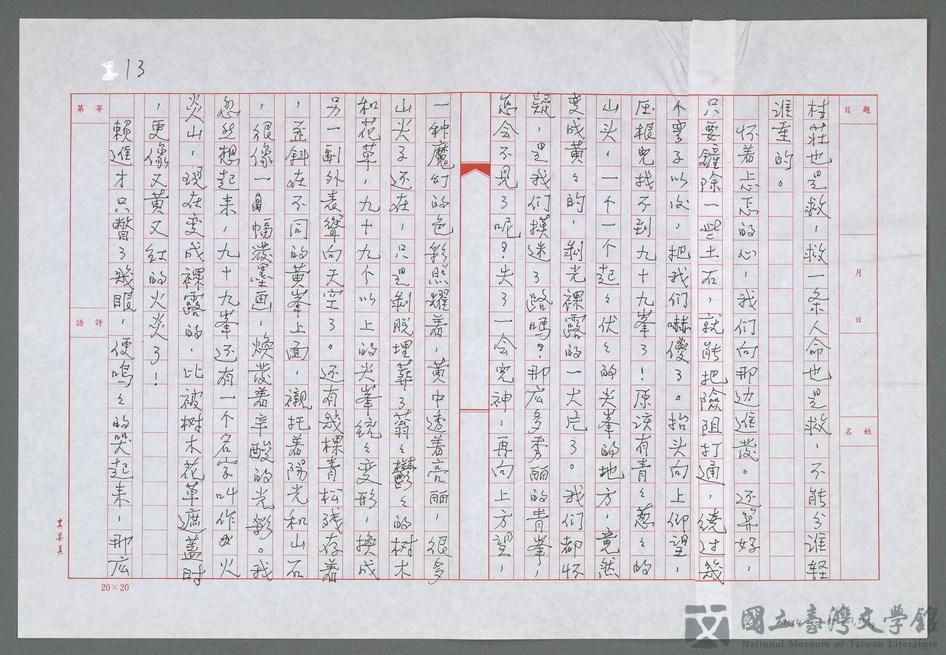 13
題目
月
日
姓名
村莊也是救，救一条人命也是救，不能分谁轻
谁重的。
怀着忐忑的心，我们向那边進發。还算好，
只要鏟除一些土石，就能把險阻打通，绕过幾
个弯子以後，把我们嚇傻了。抬头向上仰望，
压根兒找不到九十九峯了！原该有青々葱々的
山头，一个一个起々伏々的尖峯的地方，竟然
变成黃々的，剝光裸露的一大片了。我们都怀
疑，是我们摸迷了路嗎？那庅多秀丽的青峯，
怎会不見了呢？失了一会兒神，再向上方望，
一种魔幻的色彩照耀着，黃中透着亮丽，很多
山尖子还在，只是剝脱埋葬了蓊々鬱々的树木
和花草，九十九个以上的尖峯统々变形，换成
另一副外表聳向天空了。还有幾棵青松残存着
，歪斜在不同的黃峯上面，襯托着陽光和山石
，很像一幅潑墨画，焕發着辛酸的光彩。我
忽然想起来，九十九峯还有一个名字叫作火
炎山，现在变成裸露的，比被树木花草遮蓋时
，更像又黄又红的火炎了！
賴進才只瞥了幾眼，便嗚々的哭起来，那庅
等第
評語
20×20
國立臺灣文学館
National Museum of Taiwan Literature